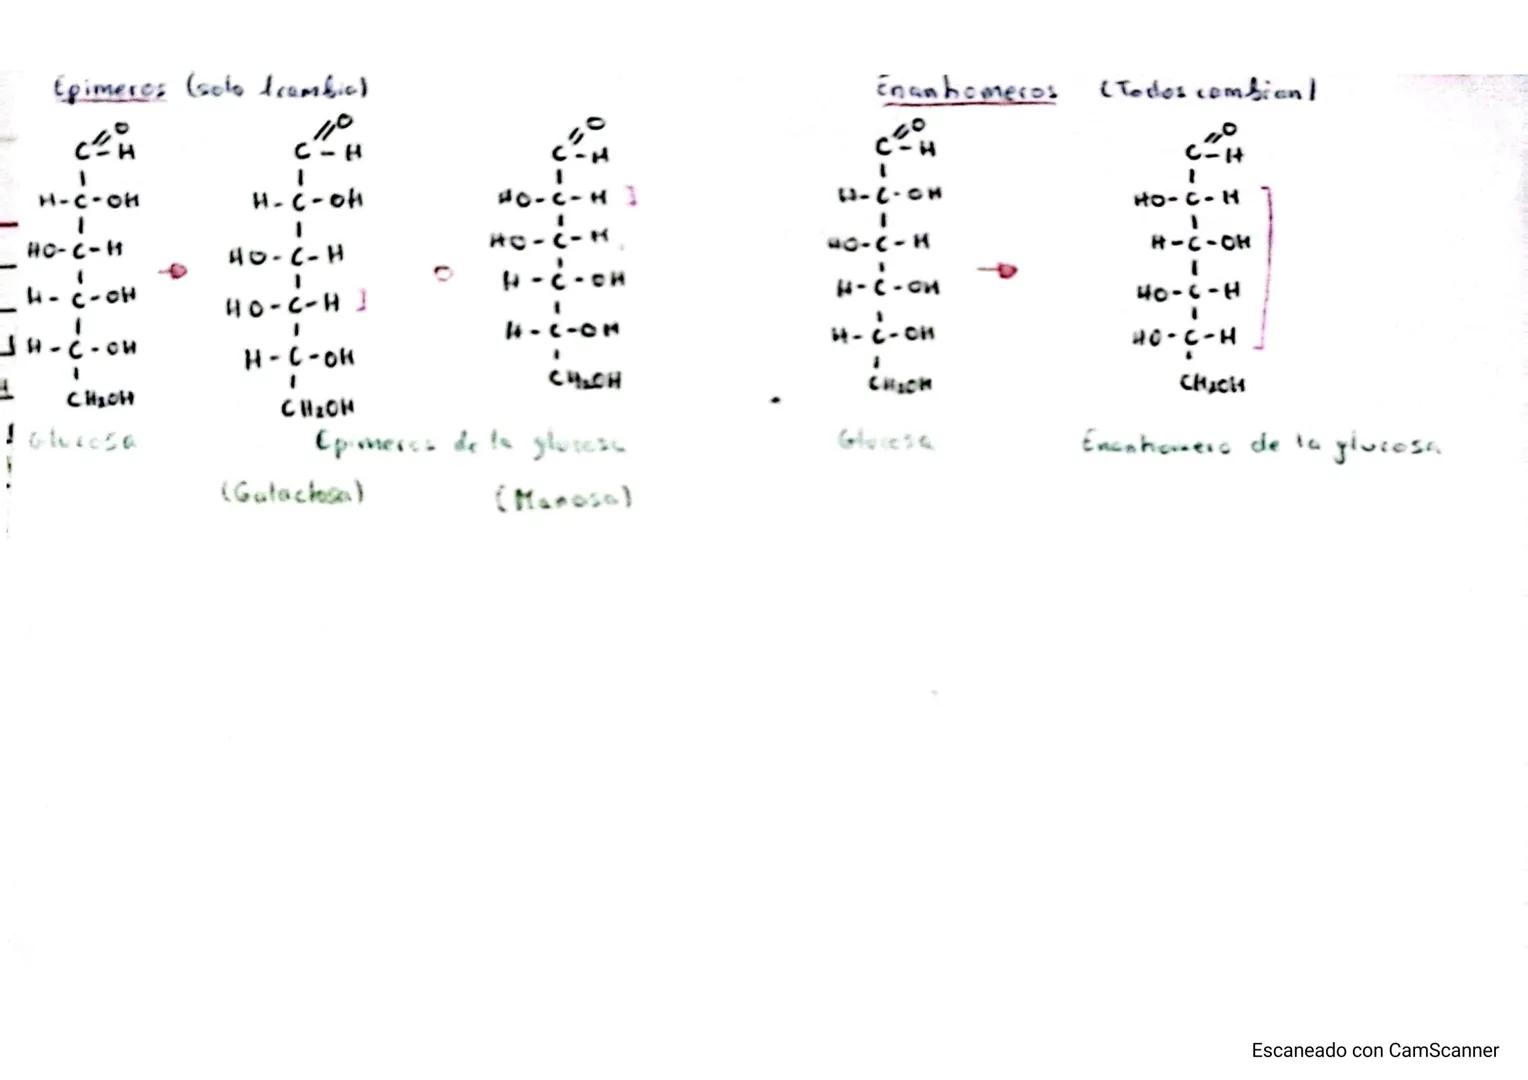 Epimeros (solo 1 cambia)
C=O
-H
H-C-OH
HO-C-H
H-C-OH
H-C-OH
CH₂OH
Glucosa
C=O
-H
H-C-OH
HO-C-H
HO-C-H ]
H-C-OH
CH₂OH
(Galactosa)
o
C=O
-H
HO-C-H ]
HO-C-H
H-C-OH
H-C-OH
CH₂OH
Epimeros de la glucosa
(Manosa)
Enantiomeros (Todos cambian)
C=O
-H
H-C-OH
HO-C-H
H-C-OH
H-C-OH
CH₂OH
Glucosa
C=O
-H
HO-C-H
H-C-OH
HO-C-H
HO-C-H
CH₂OH
Enantiomero de la glucosa
Escaneado con CamScanner